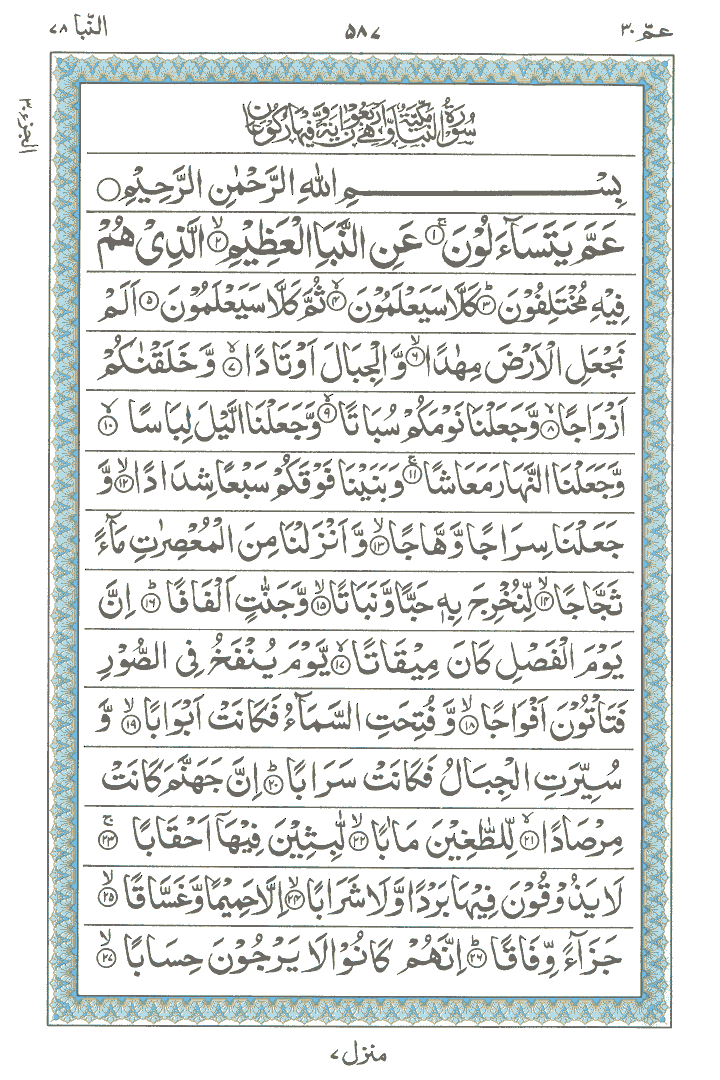 عمّ ٣٠
٥٨٧
النّبا ٧٨
الجزء ٣٠
سُوْرَةُ النَّبَاِ مَكِّيَّةٌ وَّهِيَ اَرْبَعُوْنَ اٰيَةً وَّفِيْهَا رُكُوْعَانِ
بِسْمِ اللّٰهِ الرَّحْمٰنِ الرَّحِيْمِ ○
عَمَّ يَتَسَآءَلُوْنَ ۚ‏﴿۱﴾ عَنِ النَّبَاِ الْعَظِيْمِ ۙ‏﴿۲﴾ الَّذِىْ هُمْ
فِيْهِ مُخْتَلِفُوْنَ ؕ‏﴿۳﴾ كَلَّا سَيَعْلَمُوْنَ ۙ‏﴿۴﴾ ثُمَّ كَلَّا سَيَعْلَمُوْنَ ﴿۵﴾ اَلَمْ
نَجْعَلِ الْاَرْضَ مِهٰدًا ۙ‏﴿۶﴾ وَّالْجِبَالَ اَوْتَادًا ۙ‏﴿۷﴾ وَّخَلَقْنٰكُمْ
اَزْوَاجًا ۙ‏﴿۸﴾ وَّجَعَلْنَا نَوْمَكُمْ سُبَاتًا ۙ‏﴿۹﴾ وَّجَعَلْنَا الَّيْلَ لِبَاسًا ۙ‏﴿۱۰﴾
وَّجَعَلْنَا النَّهَارَ مَعَاشًا ۚ‏﴿۱۱﴾ وَبَنَيْنَا فَوْقَكُمْ سَبْعًا شِدَادًا ۙ‏﴿۱۲﴾ وَّ
جَعَلْنَا سِرَاجًا وَّهَّاجًا ۙ‏﴿۱۳﴾ وَّاَنْزَلْنَا مِنَ الْمُعْصِرٰتِ مَآءً
ثَجَّاجًا ۙ‏﴿۱۴﴾ لِّنُخْرِجَ بِهٖ حَبًّا وَّنَبَاتًا ۙ‏﴿۱۵﴾ وَّجَنّٰتٍ اَلْفَافًا ؕ‏﴿۱۶﴾ اِنَّ
يَوْمَ الْفَصْلِ كَانَ مِيْقَاتًا ۙ‏﴿۱۷﴾ يَّوْمَ يُنْفَخُ فِى الصُّوْرِ
فَتَاْتُوْنَ اَفْوَاجًا ۙ‏﴿۱۸﴾ وَّفُتِحَتِ السَّمَآءُ فَكَانَتْ اَبْوَابًا ۙ‏﴿۱۹﴾ وَّ
سُيِّرَتِ الْجِبَالُ فَكَانَتْ سَرَابًا ؕ‏﴿۲۰﴾ اِنَّ جَهَنَّمَ كَانَتْ
مِرْصَادًا ۙ‏﴿۲۱﴾ لِّلطّٰغِيْنَ مَاٰبًا ۙ‏﴿۲۲﴾ لّٰبِثِيْنَ فِيْهَآ اَحْقَابًا ۚ‏﴿۲۳﴾
لَا يَذُوْقُوْنَ فِيْهَا بَرْدًا وَّلَا شَرَابًا ۙ‏﴿۲۴﴾ اِلَّا حَمِيْمًا وَّغَسَّاقًا ۙ‏﴿۲۵﴾
جَزَآءً وِّفَاقًا ؕ‏﴿۲۶﴾ اِنَّهُمْ كَانُوْا لَا يَرْجُوْنَ حِسَابًا ۙ‏﴿۲۷﴾
منزل ٧